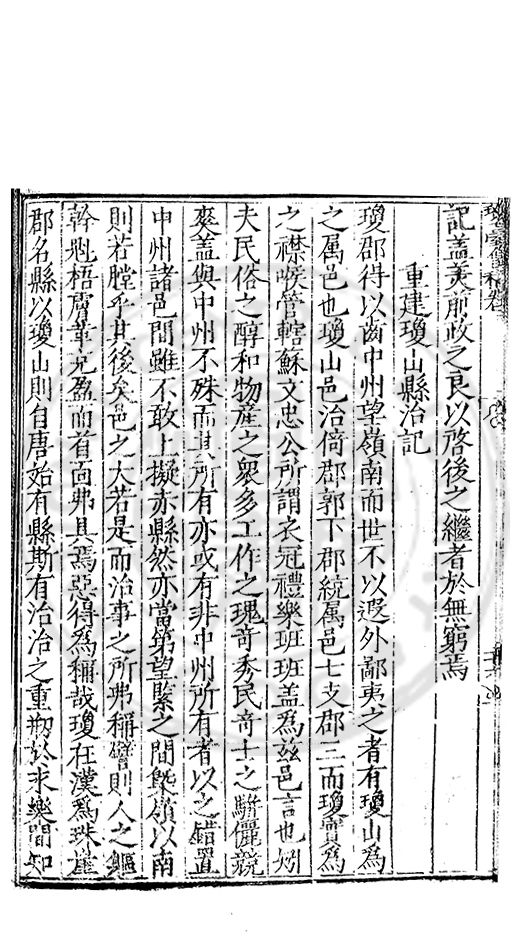 瓊臺
記蓋美前政之良以啓後之繼者於無窮焉
重建瓊山縣治記
瓊郡得以齒中州望嶺南而世不以遐外鄙夷之者有瓊山為
之属邑也瓊山邑治倚郡郭下郡統属邑七支郡三而瓊實為
之襟喉管轄蘇文忠公所謂衣冠禮樂班班盖為兹邑言也矧
夫民俗之醇和物産之衆多工作之瑰奇秀民奇士之駢儷競
爽盖與中州不殊而其所有亦或有非中州所有者以之錯置
中州諸邑間雖不敢上擬赤縣然亦當第望緊之間曁嶺以南
則若瞠乎其後矣邑之大若是而治事之所弗稱譬則人之軀
幹魁梧膚革充盈而首面弗具焉惡得為稱哉瓊在漢為珠崖
郡名縣以瓊山則自唐始有縣斯有治治之重刱於永樂間知